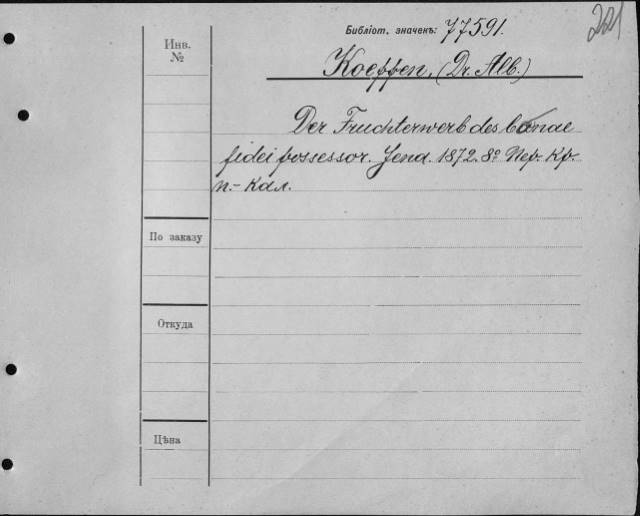 221
Библіот. значекъ: 77591.
Инв.
№
Koeppen. (Dr. Alb.)
Der Fruchterwerb des bonae
fidei possessor. Jena. 1872. 8° Пер. Кр.
п.- кал.
По заказу
Откуда
Цѣна